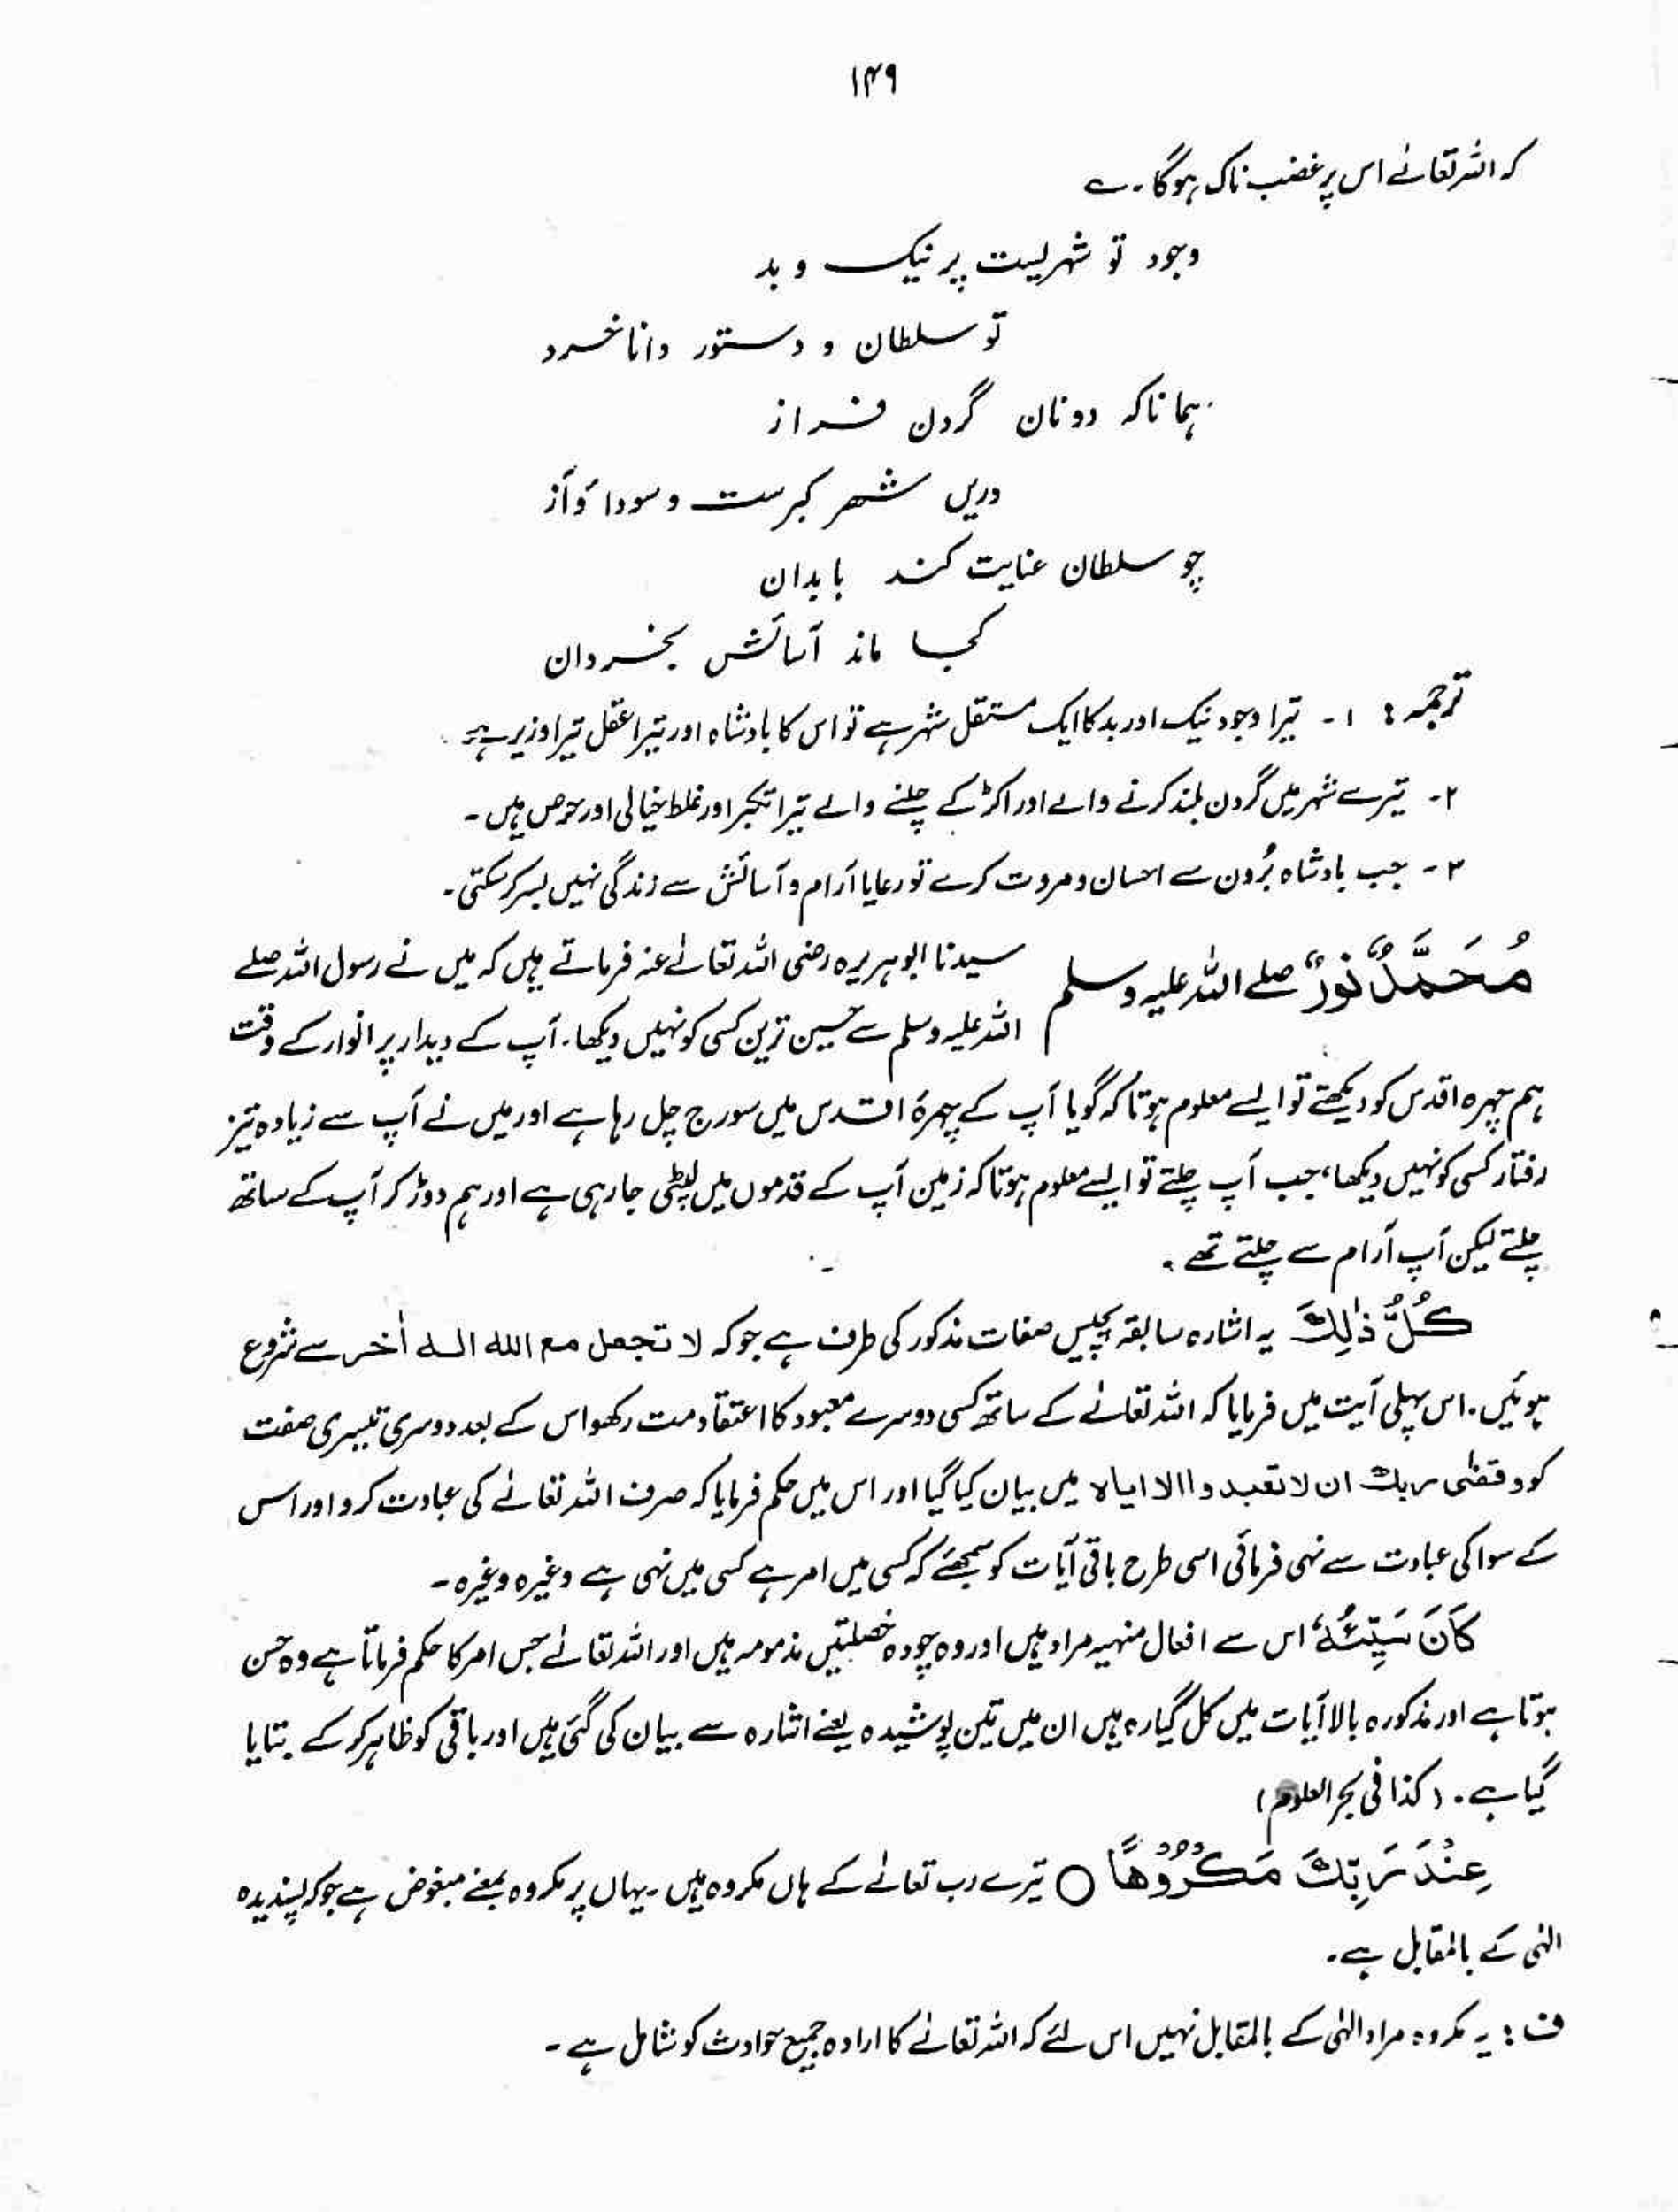 ۱۴۹
کہ اللہ تعالےٰ اس پر غضب ناک ہوگا۔ ؎
وجود تو شہریست پر نیک و بد
تو سلطان و دستور دانا خرد
ہمانا کہ دونان گردن فراز
دریں شہر کبرست و سودا ؤ آز
چو سلطان عنایت کند بابدان
کجا ماند آسائش بخردان
ترجمہ : ۱۔ تیرا وجود نیک اور بد کا ایک مستقل شہر ہے تو اس کا بادشاہ اور تیرا عقل تیرا وزیر ہے۔
۲۔ تیرے شہر میں گردن بلند کرنے والے اور اکڑ کے چلنے والے تیرا تکبر اور غلط خیالی اور حرص ہیں۔
۳۔ جب بادشاہ بُروں سے احسان و مروت کرے تو رعایا آرام و آسائش سے زندگی نہیں بسر کر سکتی۔
مُحَمَّدٌ نُورٌ صلے اللہ علیہ وسلم سیدنا ابوہریرہ رضی اللہ تعالےٰ عنہ فرماتے ہیں کہ میں نے رسول اللہ صلے
اللہ علیہ وسلم سے حسین ترین کسی کو نہیں دیکھا۔ آپ کے دیدار پر انوار کے وقت
ہم چہرہ اقدس کو دیکھتے تو ایسے معلوم ہوتا کہ گویا آپ کے چہرۂ اقدس میں سورج چل رہا ہے اور میں نے آپ سے زیادہ تیز
رفتار کسی کو نہیں دیکھا، جب آپ چلتے تو ایسے معلوم ہوتا کہ زمین آپ کے قدموں میں لپٹی جا رہی ہے اور ہم دوڑ کر آپ کے ساتھ
چلتے لیکن آپ آرام سے چلتے تھے۔
كُلُّ ذٰلِكَ یہ اشارہ سابقہ پچیس صفات مذکور کی طرف ہے جو کہ لا تجعل مع الله الٰه اٰخر سے شروع
ہوئیں۔ اس پہلی آیت میں فرمایا کہ اللہ تعالےٰ کے ساتھ کسی دوسرے معبود کا اعتقاد مت رکھو اس کے بعد دوسری تیسری صفت
کو وقضٰی ربك ان لا تعبدوا الا ایاہ میں بیان کیا گیا اور اس میں حکم فرمایا کہ صرف اللہ تعالےٰ کی عبادت کرو اور اس
کے سوا کی عبادت سے نہی فرمائی اسی طرح باقی آیات کو سمجھئے کہ کسی میں امر ہے کسی میں نہی ہے وغیرہ وغیرہ۔
كَانَ سَيِّئُهٗ اس سے افعال منہیہ مراد ہیں اور وہ چودہ خصلتیں مذمومہ ہیں اور اللہ تعالےٰ جس امر کا حکم فرماتا ہے وہ حسن
ہوتا ہے اور مذکورہ بالا آیات میں کل گیارہ ہیں ان میں تین پوشیدہ یعنے اشارہ سے بیان کی گئی ہیں اور باقی کو ظاہر کر کے بتایا
گیا ہے۔ (کذا فی بحر العلوم)
عِنْدَ رَبِّكَ مَكْرُوْهًا ○ تیرے رب تعالےٰ کے ہاں مکروہ ہیں۔ یہاں پر مکروہ بمعنے مبغوض ہے جو کہ پسندیدہ
الٰہی کے بالمقابل ہے۔
ف : یہ مکروہ مراد الٰہی کے بالمقابل نہیں اس لئے کہ اللہ تعالےٰ کا ارادہ جمیع حوادث کو شامل ہے۔